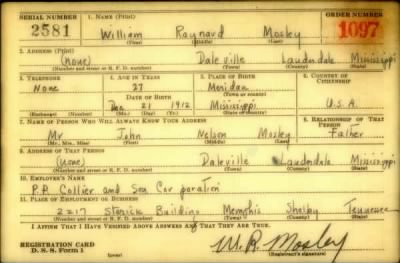 SERIAL NUMBER 1. NAME (Print) ORDER NUMBER
2581 William Raynard Mosley 1097
(First) (Middle) (Last)
2. ADDRESS (Print)
(None) Daleville Lauderdale Mississippi
(Number and street or R. F. D. number) (Town) (County) (State)
3. TELEPHONE 4. AGE IN YEARS 5. PLACE OF BIRTH 6. COUNTRY OF CITIZENSHIP
None 27 Meridan
DATE OF BIRTH (Town or county)
Dec 21 1912 Mississippi U.S.A.
(Exchange) (Number) (Mo.) (Day) (Yr.) (State or country)
7. NAME OF PERSON WHO WILL ALWAYS KNOW YOUR ADDRESS 8. RELATIONSHIP OF THAT PERSON
Mr John Nelson Mosley Father
(Mr., Mrs., Miss) (First) (Middle) (Last)
9. ADDRESS OF THAT PERSON
(None) Daleville Lauderdale Mississippi
(Number and street or R. F. D. number) (Town) (County) (State)
10. EMPLOYER'S NAME
P.F. Collier and Son Corporation
11. PLACE OF EMPLOYMENT OR BUSINESS
2217 Sterick Building Memphis Shelby Tennessee
(Number and street or R. F. D. number) (Town) (County) (State)
I AFFIRM THAT I HAVE VERIFIED ABOVE ANSWERS AND THAT THEY ARE TRUE.
REGISTRATION CARD
D. S. S. Form 1 W. R. Mosley
(Registrant's signature)